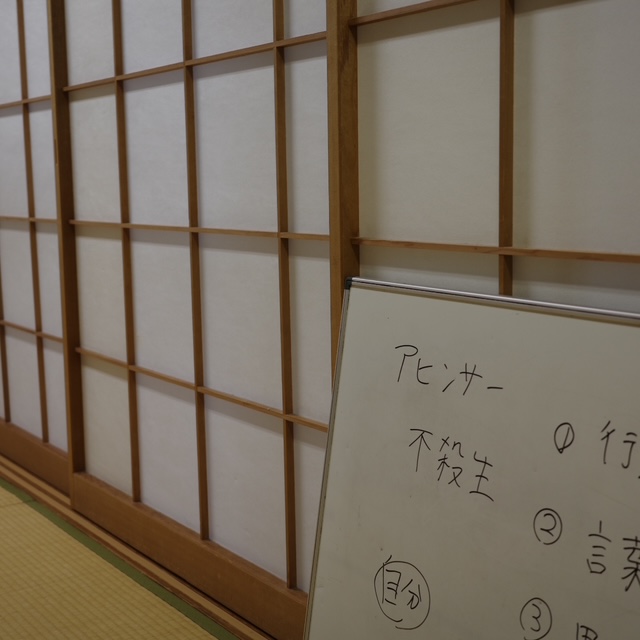 アヒンサー
不殺生
① 行
② 言葉
自分
③